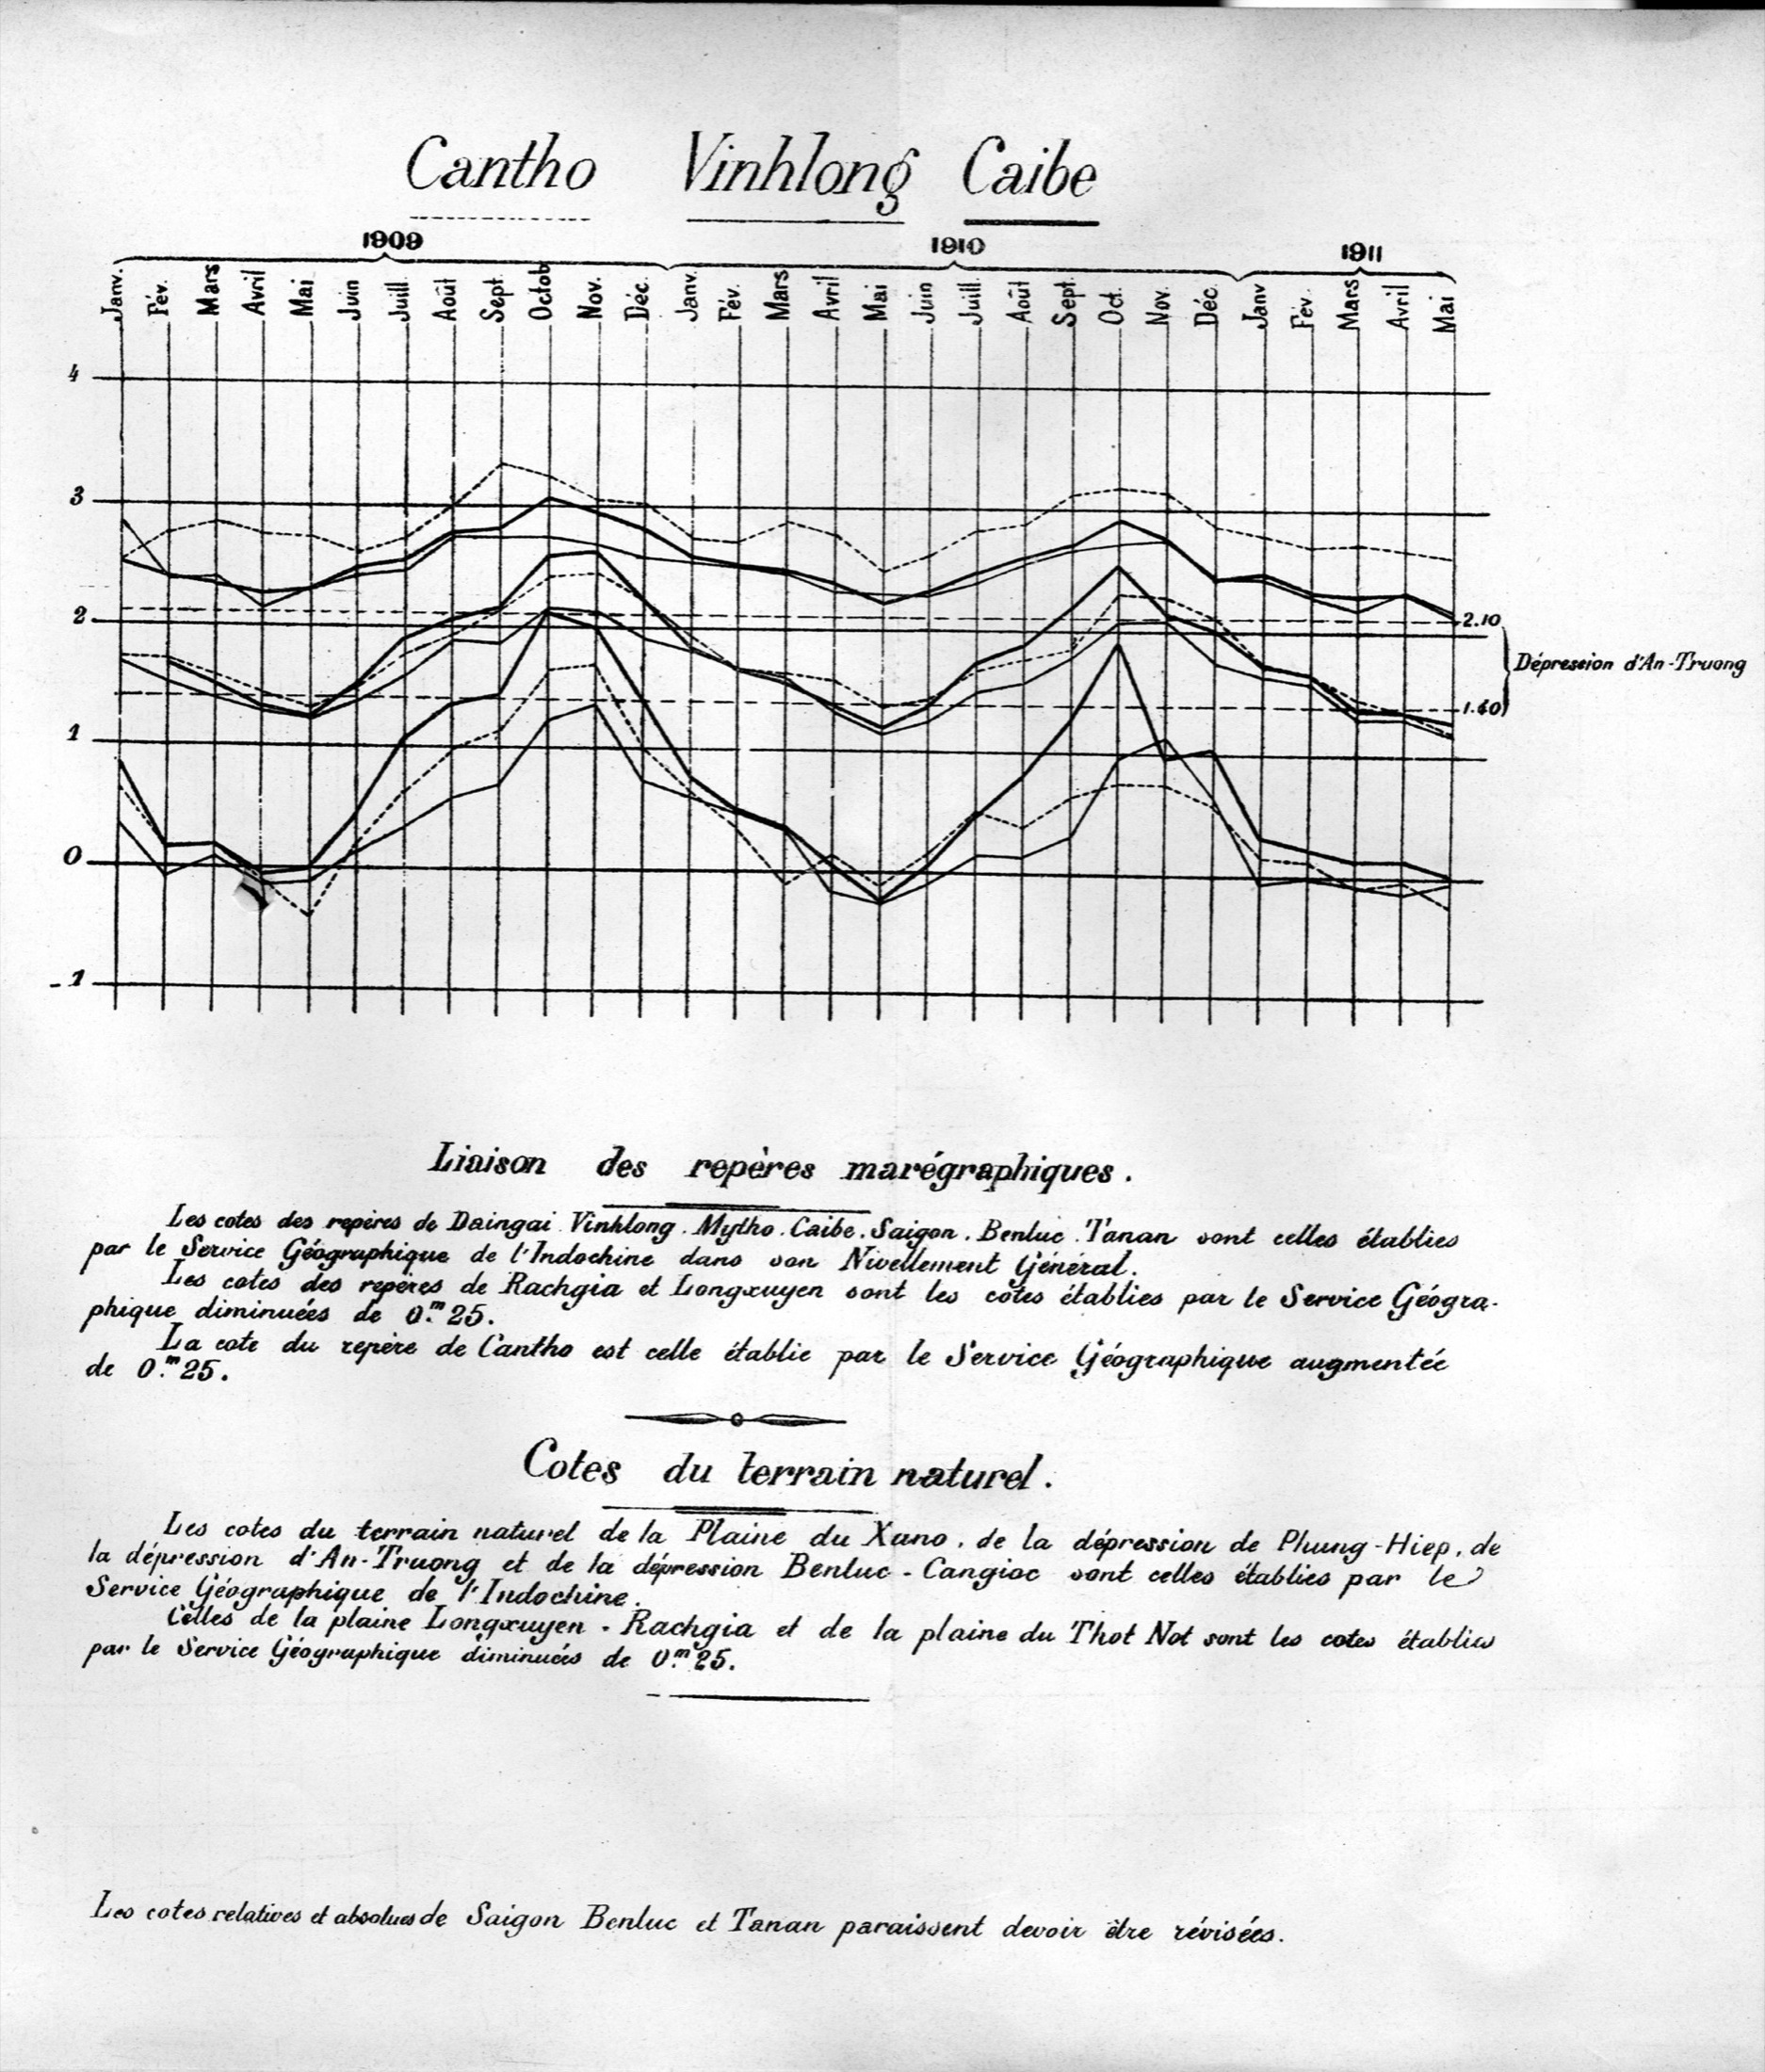 Cantho Vinhlong Caibe
1909 1910 1911
Janv. Fév. Mars Avril Mai Juin Juill. Août Sept. Octob Nov. Déc. Janv. Fév. Mars Avril Mai Juin Juill. Août Sept. Oct. Nov. Déc. Janv Fév. Mars Avril Mai
4
3
2
2.10
Dépression d'An-Truong
1.40
1
0
-1
Liaison des repères marégraphiques.
Les cotes des repères de Daingai Vinhlong. Mytho. Caibe. Saigon. Benluc. Tanan sont celles établies
par le Service Géographique de l'Indochine dans son Nivellement Général.
Les cotes des repères de Rachgia et Longxuyen sont les cotes établies par le Service Géogra-
phique diminuées de 0.m25.
La cote du repère de Cantho est celle établie par le Service Géographique augmentée
de 0.m25.
Cotes du terrain naturel.
Les cotes du terrain naturel de la Plaine du Xano, de la dépression de Phung-Hiep, de
la dépression d'An-Truong et de la dépression Benluc - Cangioc sont celles établies par le
Service Géographique de l'Indochine.
Celles de la plaine Longxuyen - Rachgia et de la plaine du Thot Not sont les cotes établies
par le Service Géographique diminuées de 0.m25.
Les cotes relatives et absolues de Saigon Benluc et Tanan paraissent devoir être révisées.